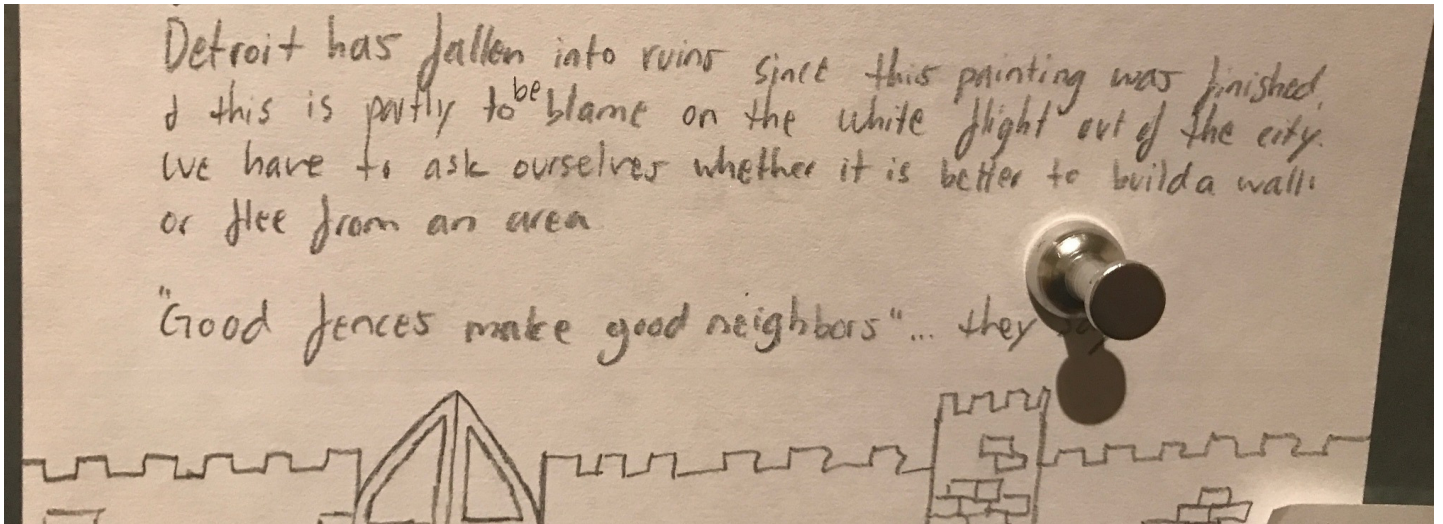 Detroit has fallen into ruins since this painting was finished,
& this is partly to be blame on the white flight out of the city.
We have to ask ourselves whether it is better to build a wall
or flee from an area
"Good fences make good neighbors"... they say